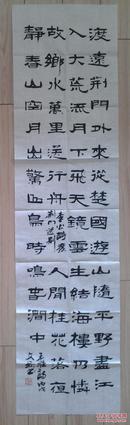 渡遠荆門外來從楚國遊山隨平野盡江
入大荒流月下飛天鏡雲生結海樓仍憐
故鄉水萬里送行舟
李白詩渡
荆門送別
人閒桂花落夜
靜春山空月出驚山鳥時鳴春澗中
王維詩